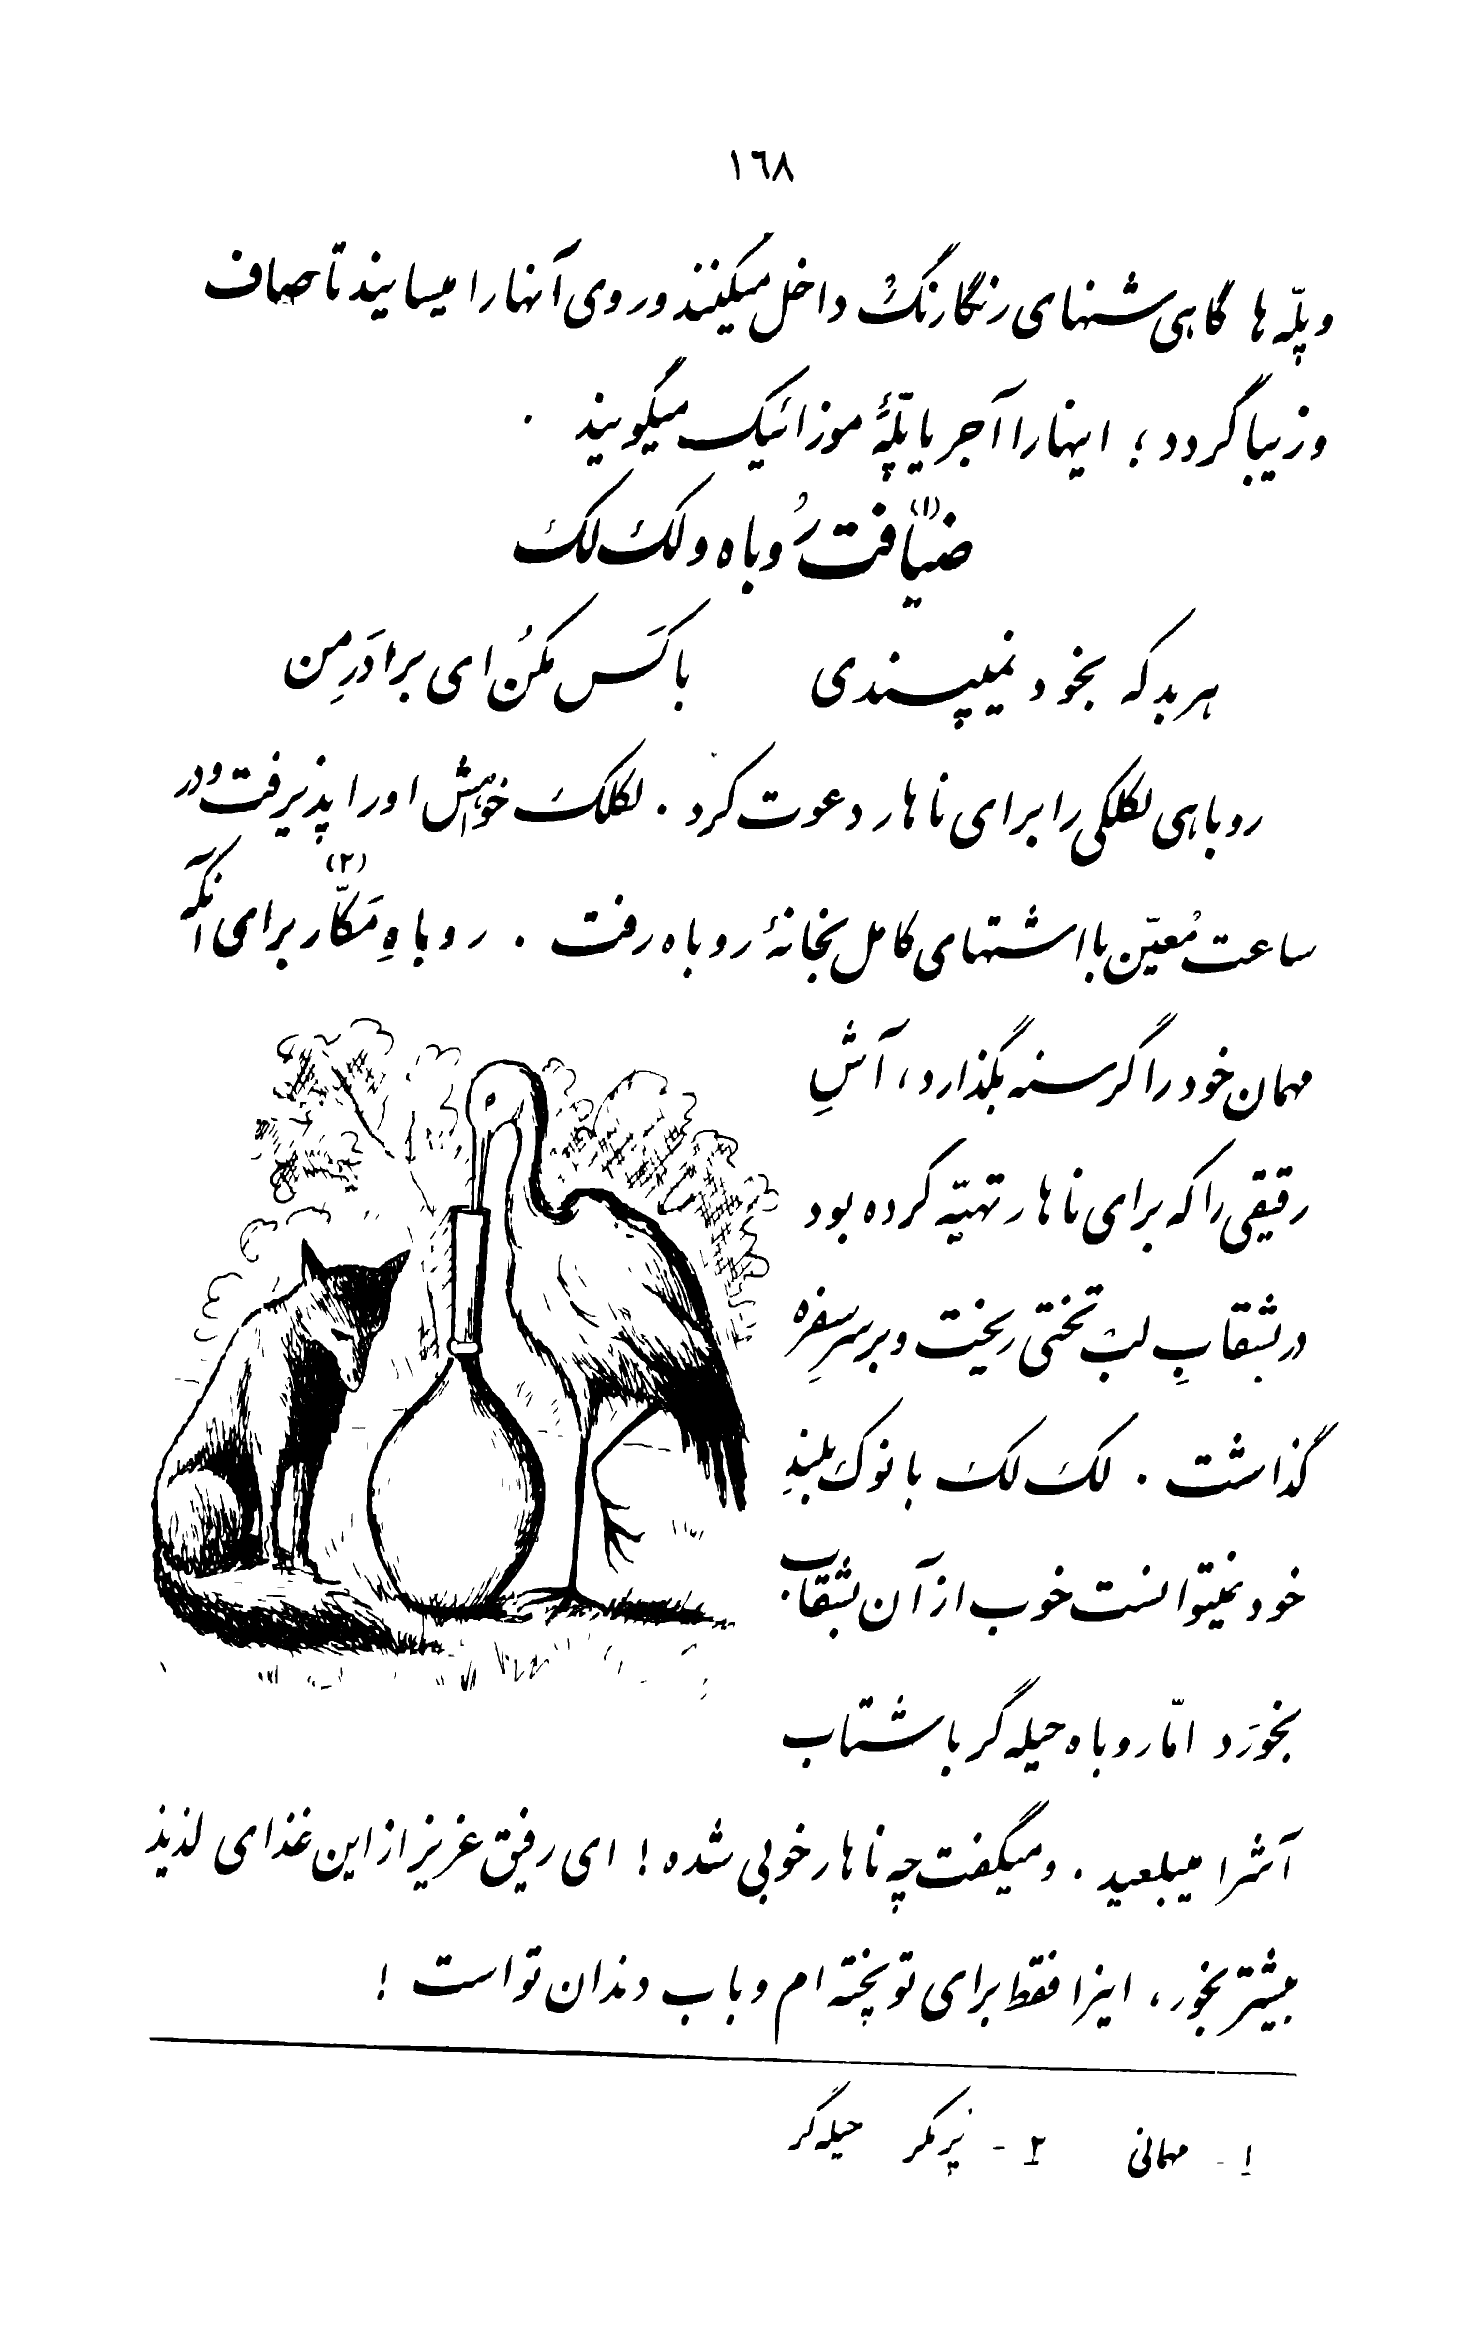 ١٦٨
و پلّه ها گاهی شنهای رنگارنگ داخل میکنند و روی آنها را میسایند تا صاف
و زیبا گردد ؛ اینها را آجر یا پلّۀ موزائیک میگویند .
ضیافت (۱) رُوباه و لک لک
هر بد که بخود نمیپسندی     با کَس مکُن ای برادَرِ من
روباهی لکلکی را برای ناهار دعوت کرد . لکلک خواهش او را پذیرفت و در
ساعت مُعیّن با اشتهای کامل بخانۀ روباه رفت . روباهِ مَکّار (۲) برای آنکه
مهمان خود را گرسنه بگذارد ، آشِ
رقیقی را که برای ناهار تهیّه کرده بود
در بشقابِ لب تختی ریخت و بر سرِ سفره
گذاشت . لک لک با نوک بلندِ
خود نمیتوانست خوب از آن بشقاب
بخورَد امّا روباه حیله گر با شتاب
آشرا میبلعید . و میگفت چه ناهار خوبی شده ! ای رفیق عزیز از این غذای لذیذ
بیشتر بخور ، اینرا فقط برای تو پخته ام و باب دندان تو است !
۱ - مهمانی     ۲ - پُر مکر   حیله گر